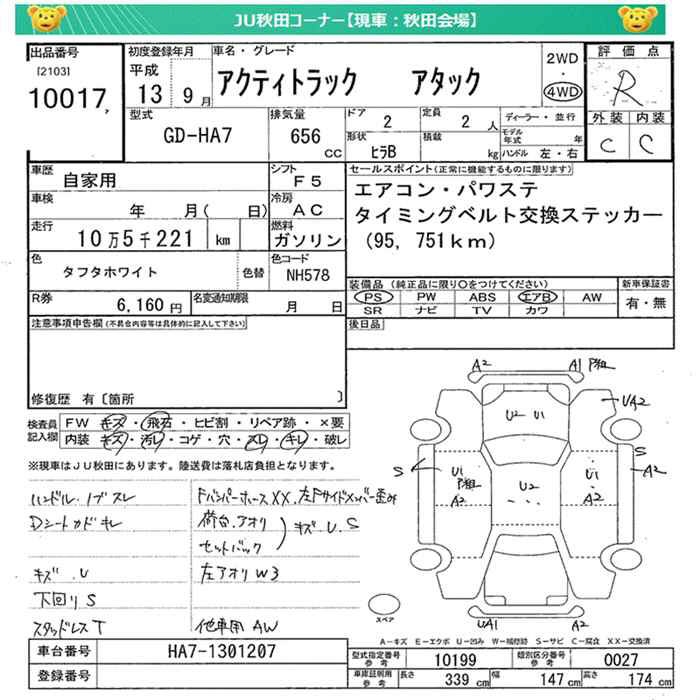 JU秋田コーナー【現車：秋田会場】
出品番号
[2103]
10017
初度登録年月
平成
13 9 月
車名・グレード
アクティトラック アタック
2WD
・
4WD
評価点
R
外装 内装
C C
型式
GD-HA7
排気量
656
CC
ドア
2
定員
2 人
ディーラー・並行
形状
ヒラB
積載
kg
モデル年式 年
ハンドル 左・右
車歴
自家用
シフト
F5
車検
年 月( 日)
冷房
AC
走行
10万5千221 km
燃料
ガソリン
色
タフタホワイト
色替
色コード
NH578
R券
6,160 円
名変通知期限
月 日
セールスポイント(正常に機能するものに限ります)
エアコン・パワステ
タイミングベルト交換ステッカー
(95, 751km)
装備品 (純正品に限り○をつけてください)
PS PW ABS エアB AW
SR ナビ TV カワ
新車保証書
有・無
後日品
注意事項申告欄(不具合内容等は具体的に記入して下さい)
修復歴 有〔箇所 〕
検査員記入欄
FW キズ・飛石・ヒビ割・リペア跡・×要
内装 キズ・汚レ・コゲ・穴・スレ・キレ・破レ
※現車はJU秋田にあります。陸送費は落札店負担となります。
ハンドル.ノブスレ
Dシートカドキレ
キズ.U
下回りS
スタッドレスT
FバンパーホースXX.左Fサイドメンバー歪み
荷台.アオリ
セットバック
キズ.U.S
左アオリW3
他車用AW
A2 A1
U2 U1
UA2
S
S
A2
U1
A2
U2
U1
A2
UA1 A2
スペア
A-キズ E-エクボ U-凹み W-補修跡 S-サビ C-腐食 XX-交換済
車台番号
HA7-1301207
登録番号
型式指定番号 参考
10199
類別区分番号 参考
0027
車庫証明用 参考
長さ 339 cm
幅 147 cm
高さ 174 cm